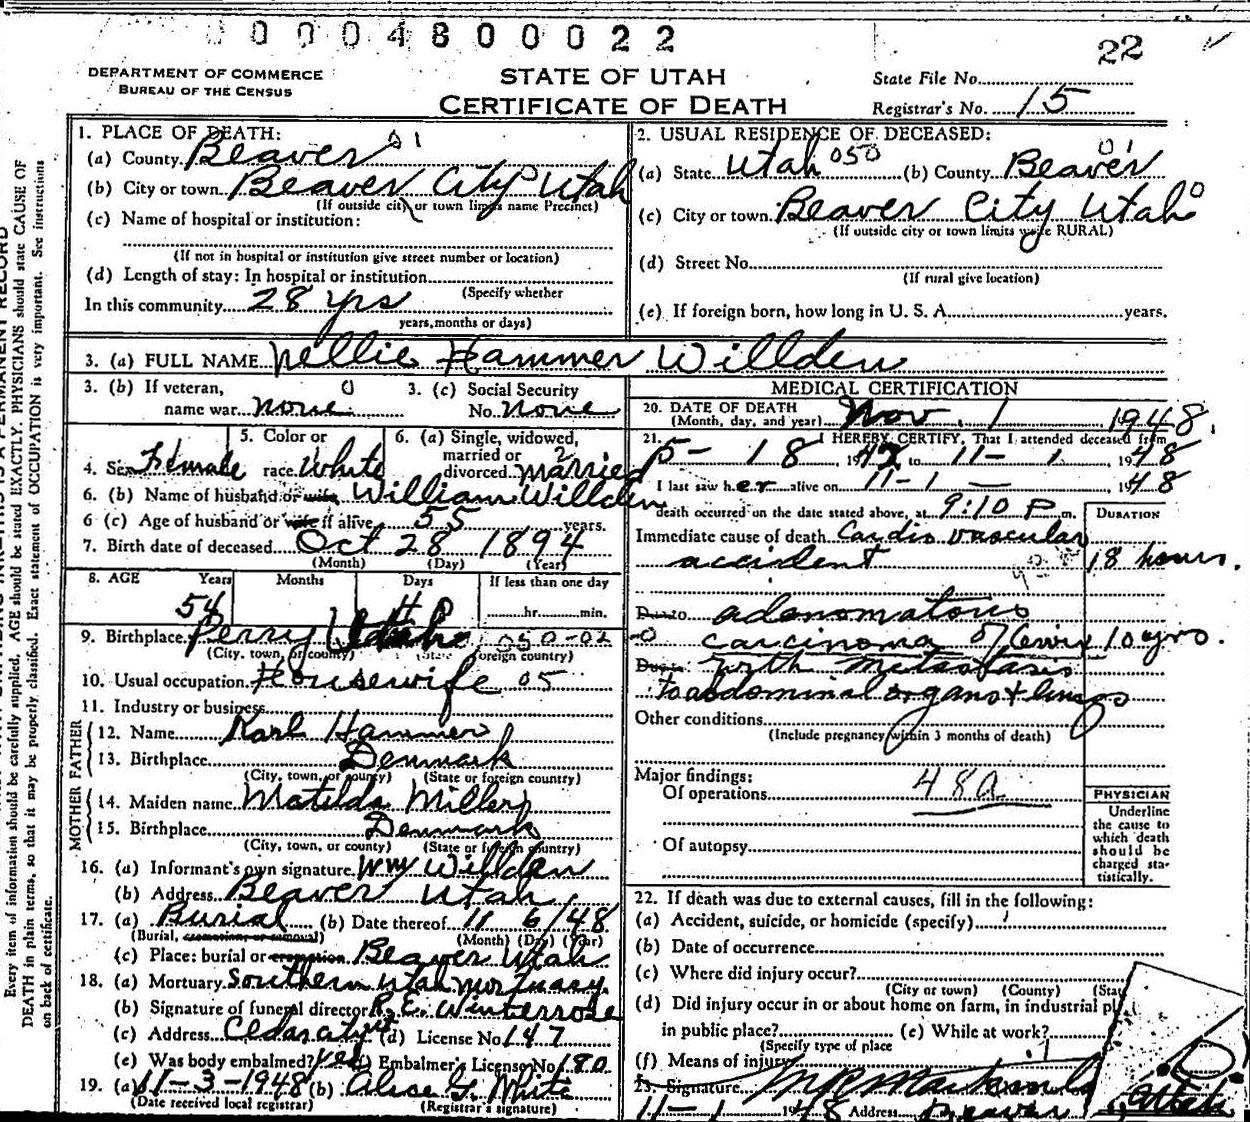 0 0 0 4 8 0 0 0 2 2
22
DEPARTMENT OF COMMERCE
BUREAU OF THE CENSUS
STATE OF UTAH
CERTIFICATE OF DEATH
State File No.
Registrar's No. 15
1. PLACE OF DEATH:
(a) County Beaver 01
(b) City or town Beaver City Utah
(If outside city or town limits name Precinct)
(c) Name of hospital or institution:
(If not in hospital or institution give street number or location)
(d) Length of stay: In hospital or institution
(Specify whether
In this community 28 yrs
years, months or days)
2. USUAL RESIDENCE OF DECEASED:
(a) State Utah 050 (b) County Beaver 01
(c) City or town Beaver City Utah 0
(If outside city or town limits write RURAL)
(d) Street No.
(If rural give location)
(e) If foreign born, how long in U. S. A. years.
3. (a) FULL NAME Nellie Hammer Willden
3. (b) If veteran, 0
name war none
3. (c) Social Security
No. None
4. Sex Female
5. Color or
race White
6. (a) Single, widowed,
married or 2
divorced married
6. (b) Name of husband or wife William Willden
6 (c) Age of husband or wife if alive 55 years.
7. Birth date of deceased Oct 28 1894
(Month) (Day) (Year)
8. AGE Years Months Days If less than one day
54 4 hr. min.
9. Birthplace Perry 050-02
(City, town, or county) (State or foreign country)
10. Usual occupation Housewife 05
11. Industry or business
FATHER
12. Name Karl Hammer
13. Birthplace Denmark
(City, town, or county) (State or foreign country)
MOTHER
14. Maiden name Matilda Miller
15. Birthplace Denmark
(City, town, or county) (State or foreign country)
16. (a) Informant's own signature Wm Willden
(b) Address Beaver Utah
17. (a) Burial (b) Date thereof 11 6/48
(Burial, cremation, or removal) (Month) (Day) (Year)
(c) Place: burial or cremation Beaver Utah
18. (a) Mortuary Southern Utah Mortuary
(b) Signature of funeral director R. E. Winterrose
(c) Address Cedar City Ut (d) License No. 147
(e) Was body embalmed? yes (f) Embalmer's License No. 180
19. (a) 11-3-1948 (b) Alice G. White
(Date received local registrar) (Registrar's signature)
MEDICAL CERTIFICATION
20. DATE OF DEATH
(Month, day, and year) Nov. 1, 1948.
21. I HEREBY CERTIFY, That I attended deceased from
5-18, 1942 to 11-1, 1948
I last saw her alive on 11-1-1948
death occurred on the date stated above, at 9:10 P m.
DURATION
Immediate cause of death Cardio vascular
accident 18 hours.
Due to adenomatous
carcinoma of Cervix 10 yrs.
Due to with metastasis
to abdominal organs + lungs
Other conditions
(Include pregnancy within 3 months of death)
Major findings:
Of operations 48a
Of autopsy
PHYSICIAN
Underline
the cause to
which death
should be
charged sta-
tistically.
22. If death was due to external causes, fill in the following:
(a) Accident, suicide, or homicide (specify)
(b) Date of occurrence
(c) Where did injury occur?
(City or town) (County) (Stat
(d) Did injury occur in or about home on farm, in industrial pl
in public place? (e) While at work?
(Specify type of place
(f) Means of injury
23. Signature
11-1 1948 Address Beaver Utah
Every item of information should be carefully supplied. AGE should be stated EXACTLY. PHYSICIANS should state CAUSE OF
DEATH in plain terms, so that it may be properly classified. Exact statement of OCCUPATION is very important. See instructions
on back of certificate.